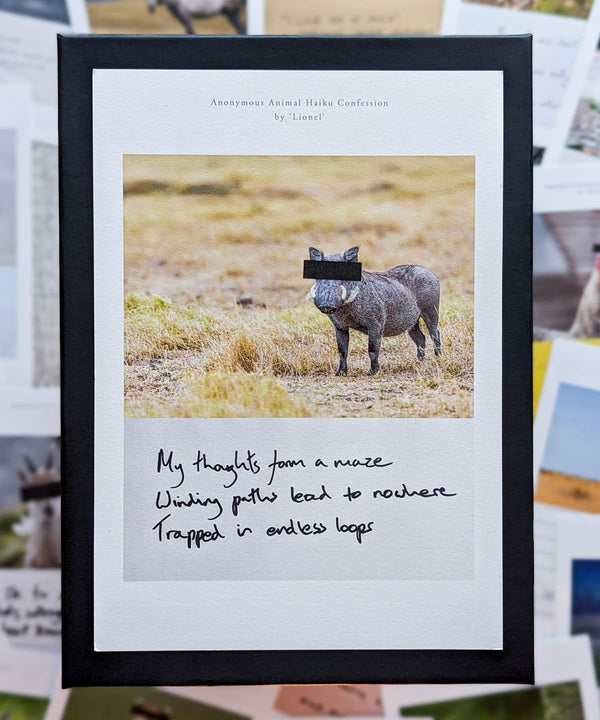 Anonymous Animal Haiku Confession
by 'Lionel'
My thoughts form a maze
Winding paths lead to nowhere
Trapped in endless loops